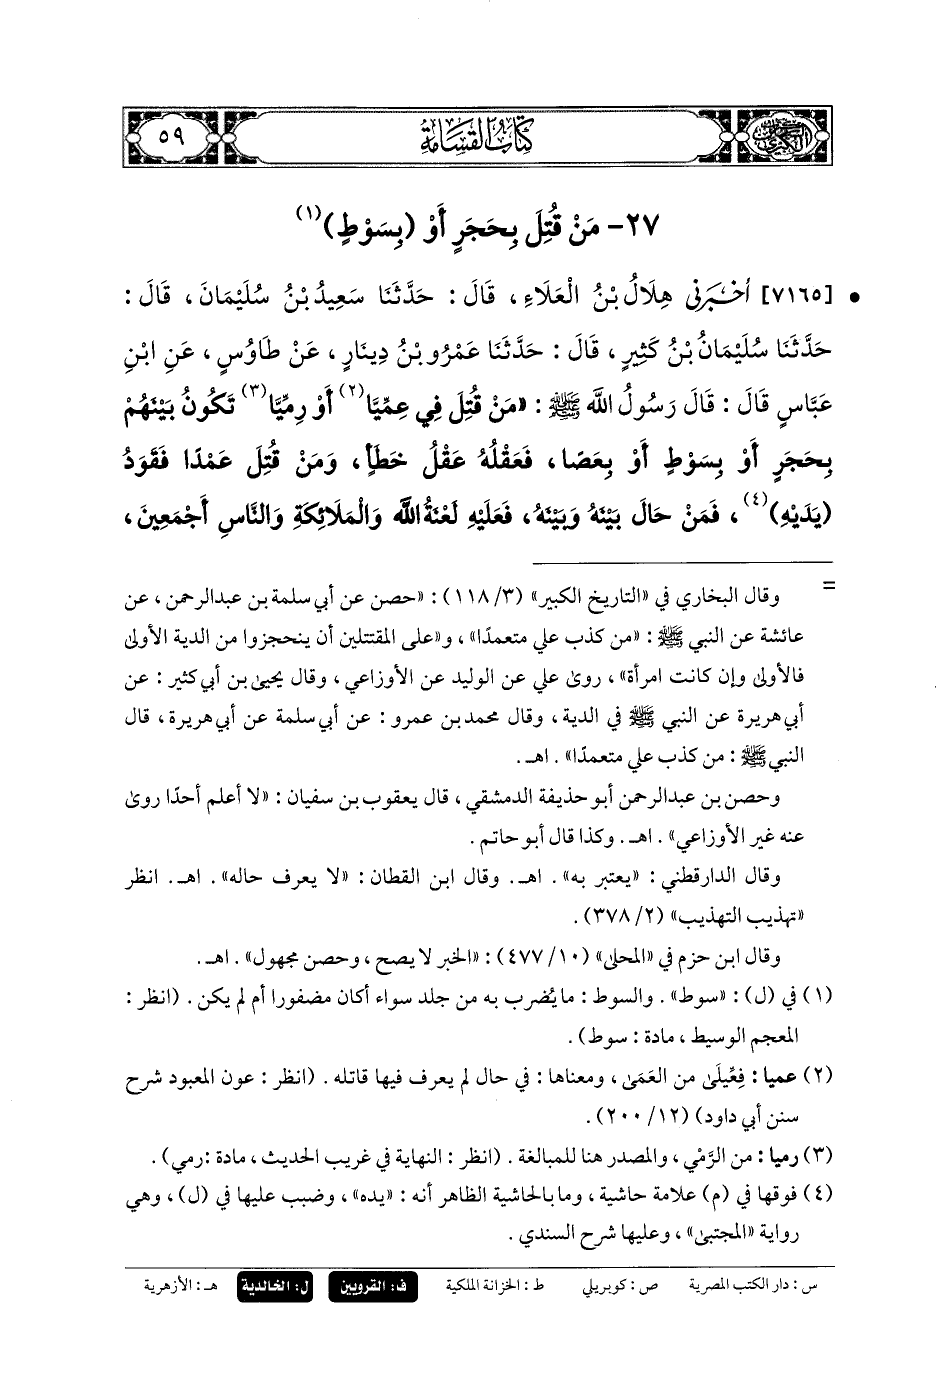 السنن الكبرى
كتاب القسامة
٥٩
٢٧- مَنْ قُتِلَ بِحَجَرٍ أَوْ (بِسَوْطٍ)(١)
• [٧١٦٥] أَخْبَرَنِي هِلَالُ بْنُ الْعَلَاءِ، قَالَ: حَدَّثَنَا سَعِيدُ بْنُ سُلَيْمَانَ، قَالَ:
حَدَّثَنَا سُلَيْمَانُ بْنُ كَثِيرٍ، قَالَ: حَدَّثَنَا عَمْرُو بْنُ دِينَارٍ، عَنْ طَاوُسٍ، عَنِ ابْنِ
عَبَّاسٍ قَالَ: قَالَ رَسُولُ اللَّهِ ﷺ: «مَنْ قُتِلَ فِي عِمِّيَّا(٢) أَوْ رِمِّيَّا(٣) تَكُونُ بَيْنَهُمْ
بِحَجَرٍ أَوْ بِسَوْطٍ أَوْ بِعَصًا، فَعَقْلُهُ عَقْلُ خَطَأٍ، وَمَنْ قُتِلَ عَمْدًا فَقَوَدُ
(يَدَيْهِ)(٤)، فَمَنْ حَالَ بَيْنَهُ وَبَيْنَهُ، فَعَلَيْهِ لَعْنَةُ اللَّهِ وَالْمَلَائِكَةِ وَالنَّاسِ أَجْمَعِينَ،
= وقال البخاري في «التاريخ الكبير» (٣/ ١١٨): «حصن عن أبي سلمة بن عبدالرحمن، عن
عائشة عن النبي ﷺ: «من كذب علي متعمدًا»، و«على المقتتلين أن ينحجزوا من الدية الأولى
فالأولى وإن كانت امرأة»، روى علي عن الوليد عن الأوزاعي، وقال يحيى بن أبي كثير: عن
أبي هريرة عن النبي ﷺ في الدية، وقال محمد بن عمرو: عن أبي سلمة عن أبي هريرة، قال
النبي ﷺ: من كذب علي متعمدًا». اهـ.
وحصن بن عبدالرحمن أبو حذيفة الدمشقي، قال يعقوب بن سفيان: «لا أعلم أحدًا روى
عنه غير الأوزاعي». اهـ. وكذا قال أبو حاتم.
وقال الدارقطني: «يعتبر به». اهـ. وقال ابن القطان: «لا يعرف حاله». اهـ. انظر
«تهذيب التهذيب» (٢/ ٣٧٨).
وقال ابن حزم في «المحلى» (١٠/ ٤٧٧): «الخبر لا يصح، وحصن مجهول». اهـ.
(١) في (ل): «سوط». والسوط: ما يُضرب به من جلد سواء أكان مضفورا أم لم يكن. (انظر:
المعجم الوسيط، مادة: سوط).
(٢) عميا: فِعِّيلَى من العَمَى، ومعناها: في حال لم يعرف فيها قاتله. (انظر: عون المعبود شرح
سنن أبي داود) (١٢/ ٢٠٠).
(٣) رميا: من الرَّمْي، والمصدر هنا للمبالغة. (انظر: النهاية في غريب الحديث، مادة: رمي).
(٤) فوقها في (م) علامة حاشية، وما بالحاشية الظاهر أنه: «يده»، وضبب عليها في (ل)، وهي
رواية «المجتبى»، وعليها شرح السندي.
س: دار الكتب المصرية ص: كوبريلي ط: الخزانة الملكية ف: القرويين ل: الخالدية هـ: الأزهرية